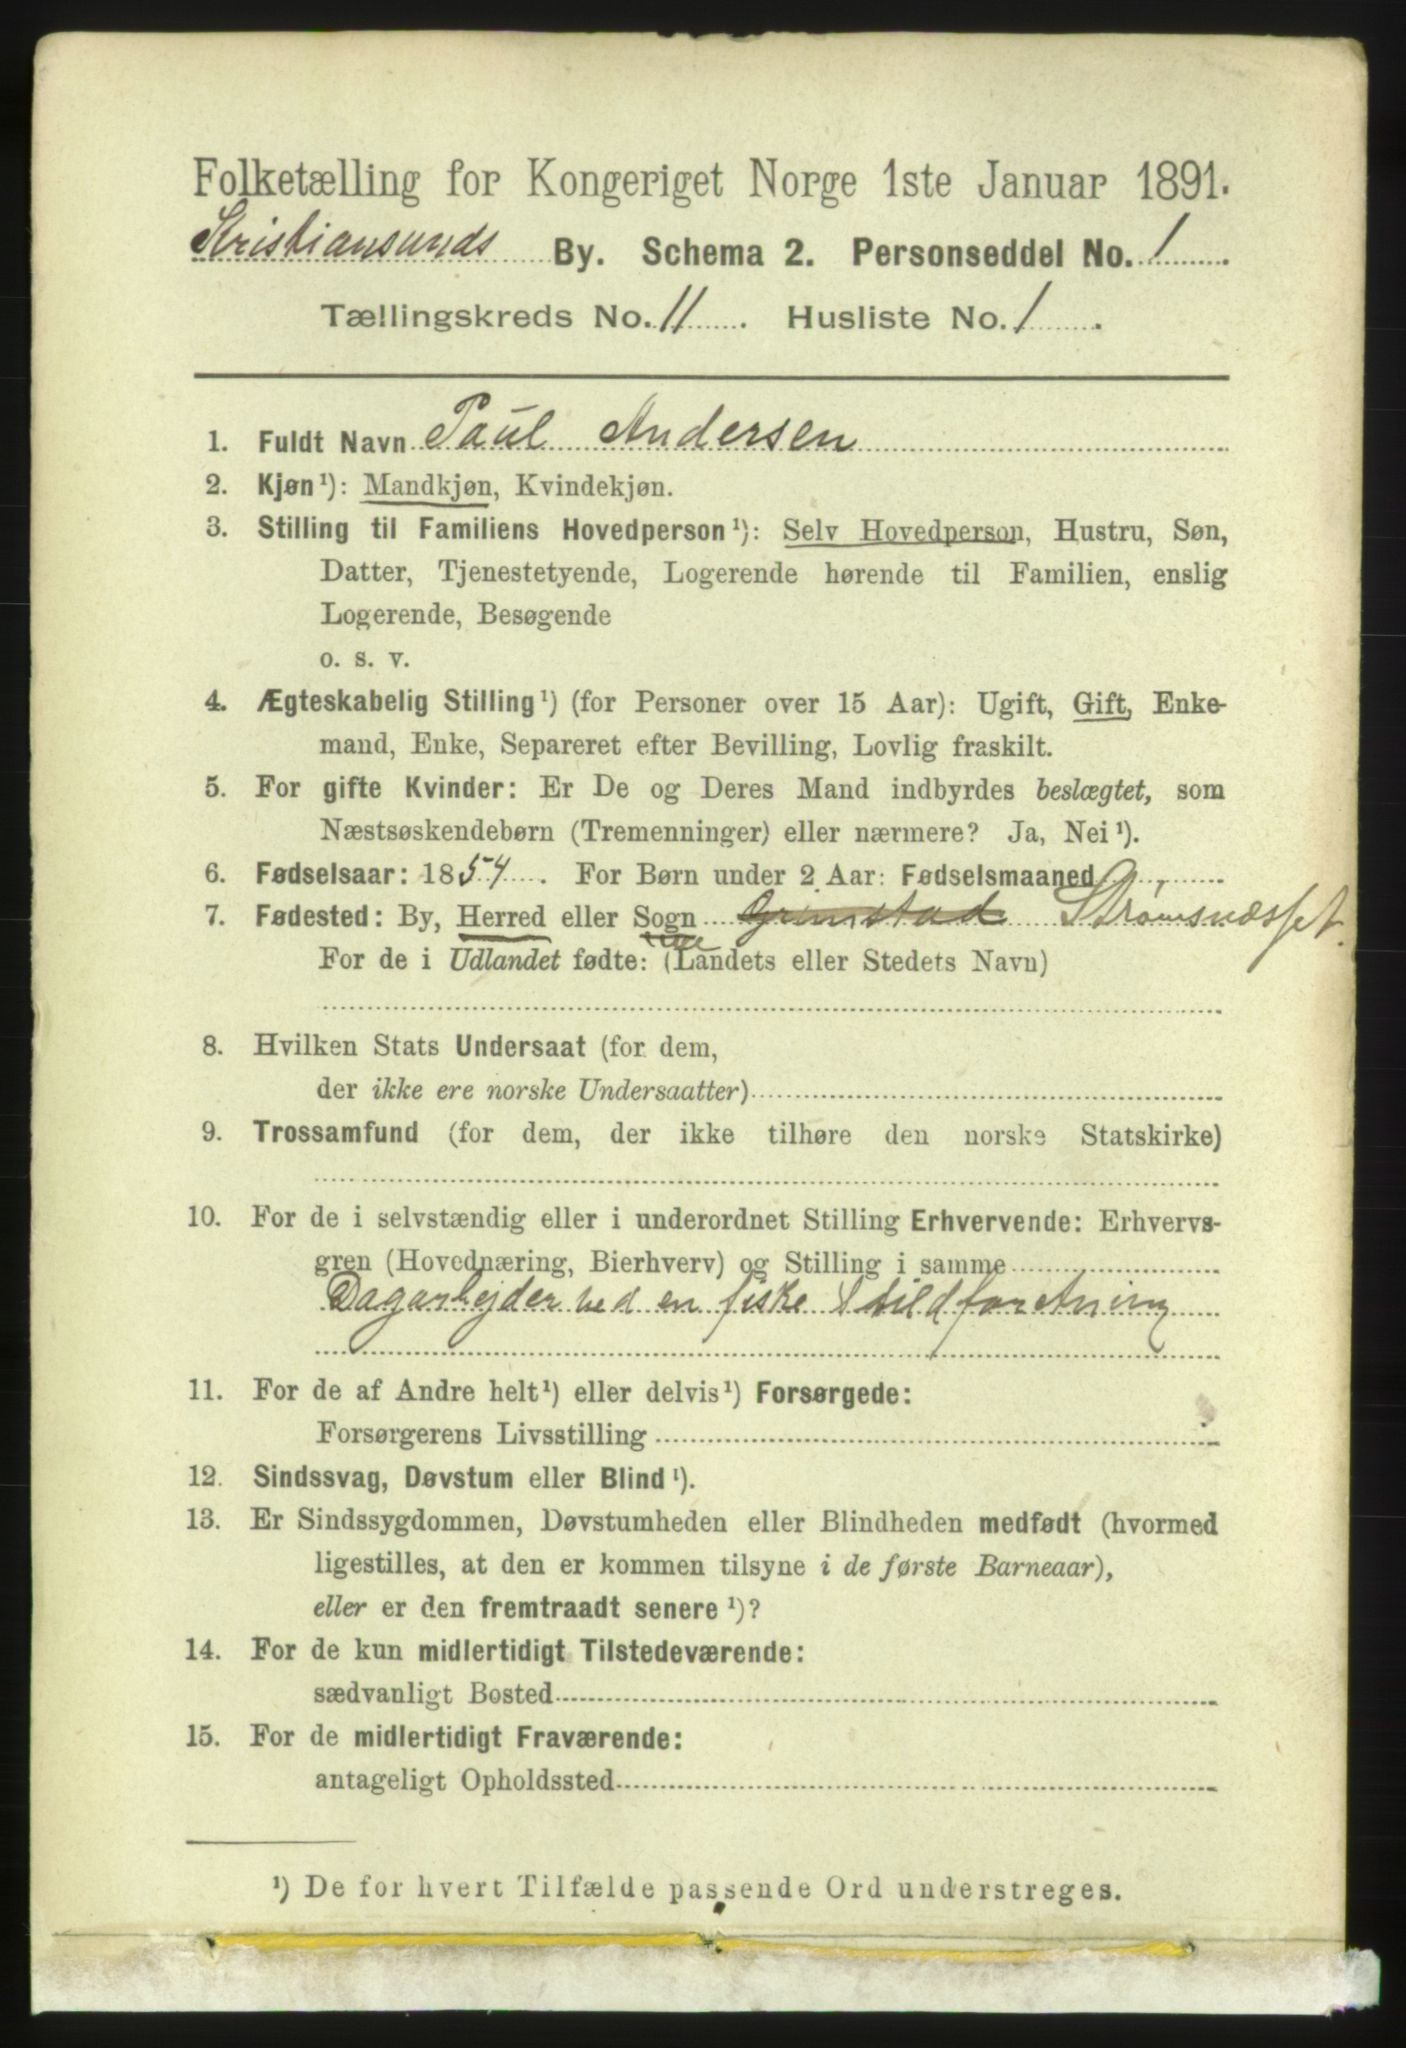 Folketælling for Kongeriget Norge 1ste Januar 1891.
Kristiansunds By. Schema 2. Personseddel No. 1
Tællingskreds No. 11. Husliste No. 1.
1. Fuldt Navn Paul Andersen
2. Kjøn¹): Mandkjøn, Kvindekjøn.
3. Stilling til Familiens Hovedperson¹): Selv Hovedperson, Hustru, Søn,
Datter, Tjenestetyende, Logerende hørende til Familien, enslig
Logerende, Besøgende
o. s. v.
4. Ægteskabelig Stilling¹) (for Personer over 15 Aar): Ugift, Gift, Enke-
mand, Enke, Separeret efter Bevilling, Lovlig fraskilt.
5. For gifte Kvinder: Er De og Deres Mand indbyrdes beslægtet, som
Næstsøskendebørn (Tremenninger) eller nærmere? Ja, Nei¹).
6. Fødselsaar: 1854. For Børn under 2 Aar: Fødselsmaaned
7. Fødested: By, Herred eller Sogn Grimstad Strømsnæsset.
For de i Udlandet fødte: (Landets eller Stedets Navn)
8. Hvilken Stats Undersaat (for dem,
der ikke ere norske Undersaatter)
9. Trossamfund (for dem, der ikke tilhøre den norske Statskirke)
10. For de i selvstændig eller i underordnet Stilling Erhvervende: Erhvervs-
gren (Hovednæring, Bierhverv) og Stilling i samme
Dagarbejder ved en fiske & sildforetning
11. For de af Andre helt¹) eller delvis¹) Forsørgede:
Forsørgerens Livsstilling
12. Sindssvag, Døvstum eller Blind¹).
13. Er Sindssygdommen, Døvstumheden eller Blindheden medfødt (hvormed
ligestilles, at den er kommen tilsyne i de første Barneaar),
eller er den fremtraadt senere¹)?
14. For de kun midlertidigt Tilstedeværende:
sædvanligt Bosted
15. For de midlertidigt Fraværende:
antageligt Opholdssted
¹) De for hvert Tilfælde passende Ord understreges.